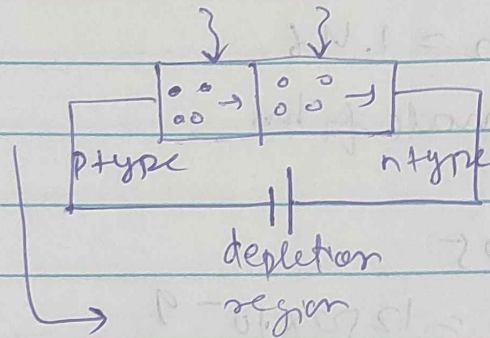 ptype ntype
depletion
region